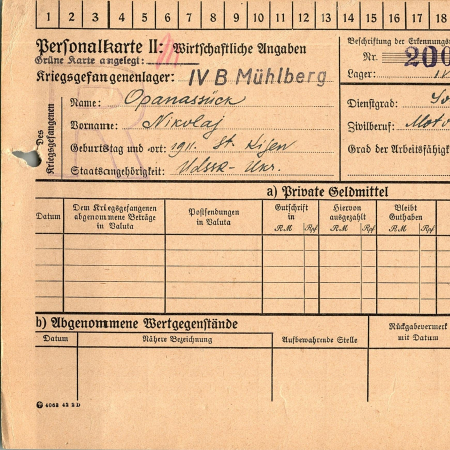 1 2 3 4 5 6 7 8 9 10 11 12 13 14 15 16 17 18
Personalkarte II: Wirtschaftliche Angaben
Grüne Karte angelegt:
Kriegsgefangenenlager: IV B Mühlberg
Des Kriegsgefangenen
Name: Opanassück
Vorname: Nikolaj
Geburtstag und -ort: 1911. St. Kijen
Staatsangehörigkeit: UdSSR - Ukr.
Beschriftung der Erkennungs
Nr. 200
Lager: IV
Dienstgrad: So
Zivilberuf: Moto
Grad der Arbeitsfähigk
a) Private Geldmittel
Datum
Dem Kriegsgefangenen abgenommene Beträge in Valuta
Postsendungen in Valuta
Gutschrift in
RM Rpf
Hiervon ausgezahlt
RM Rpf
Bleibt Guthaben
RM Rpf
b) Abgenommene Wertgegenstände
Datum
Nähere Bezeichnung
Aufbewahrende Stelle
Rückgabevermerk mit Datum
4068 43 2 D